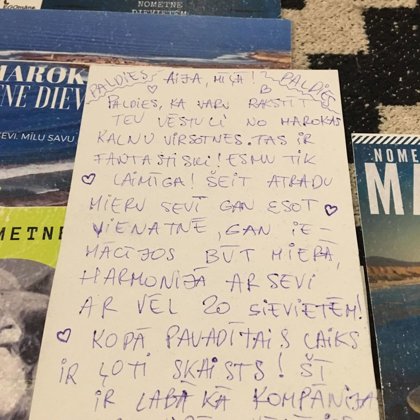 NOMETNE
DIEVIETĒM
MAROK
NE DIEV
EVI. MĪLU SAVU
OMETNE
NOME
MA
PALDIES AIJA, MĪĻĀ! PALDIES
PALDIES, KA VARU RAKSTĪT
TEV VĒSTULI NO MAROKAS
KALNU VIRSOTNES. TAS IR
FANTASTISKI! ESMU TIK
LAIMĪGA! ŠEIT ATRADU
MIERU SEVĪ GAN ESOT
VIENATNĒ, GAN IE-
MĀCĪJOS BŪT MIERĀ,
HARMONIJĀ AR SEVI
AR VĒL 20 SIEVIETĒM!
KOPĀ PAVADĪTAIS LAIKS
IR ĻOTI SKAISTS! ŠĪ
IR LABĀKĀ KOMPĀNIJA